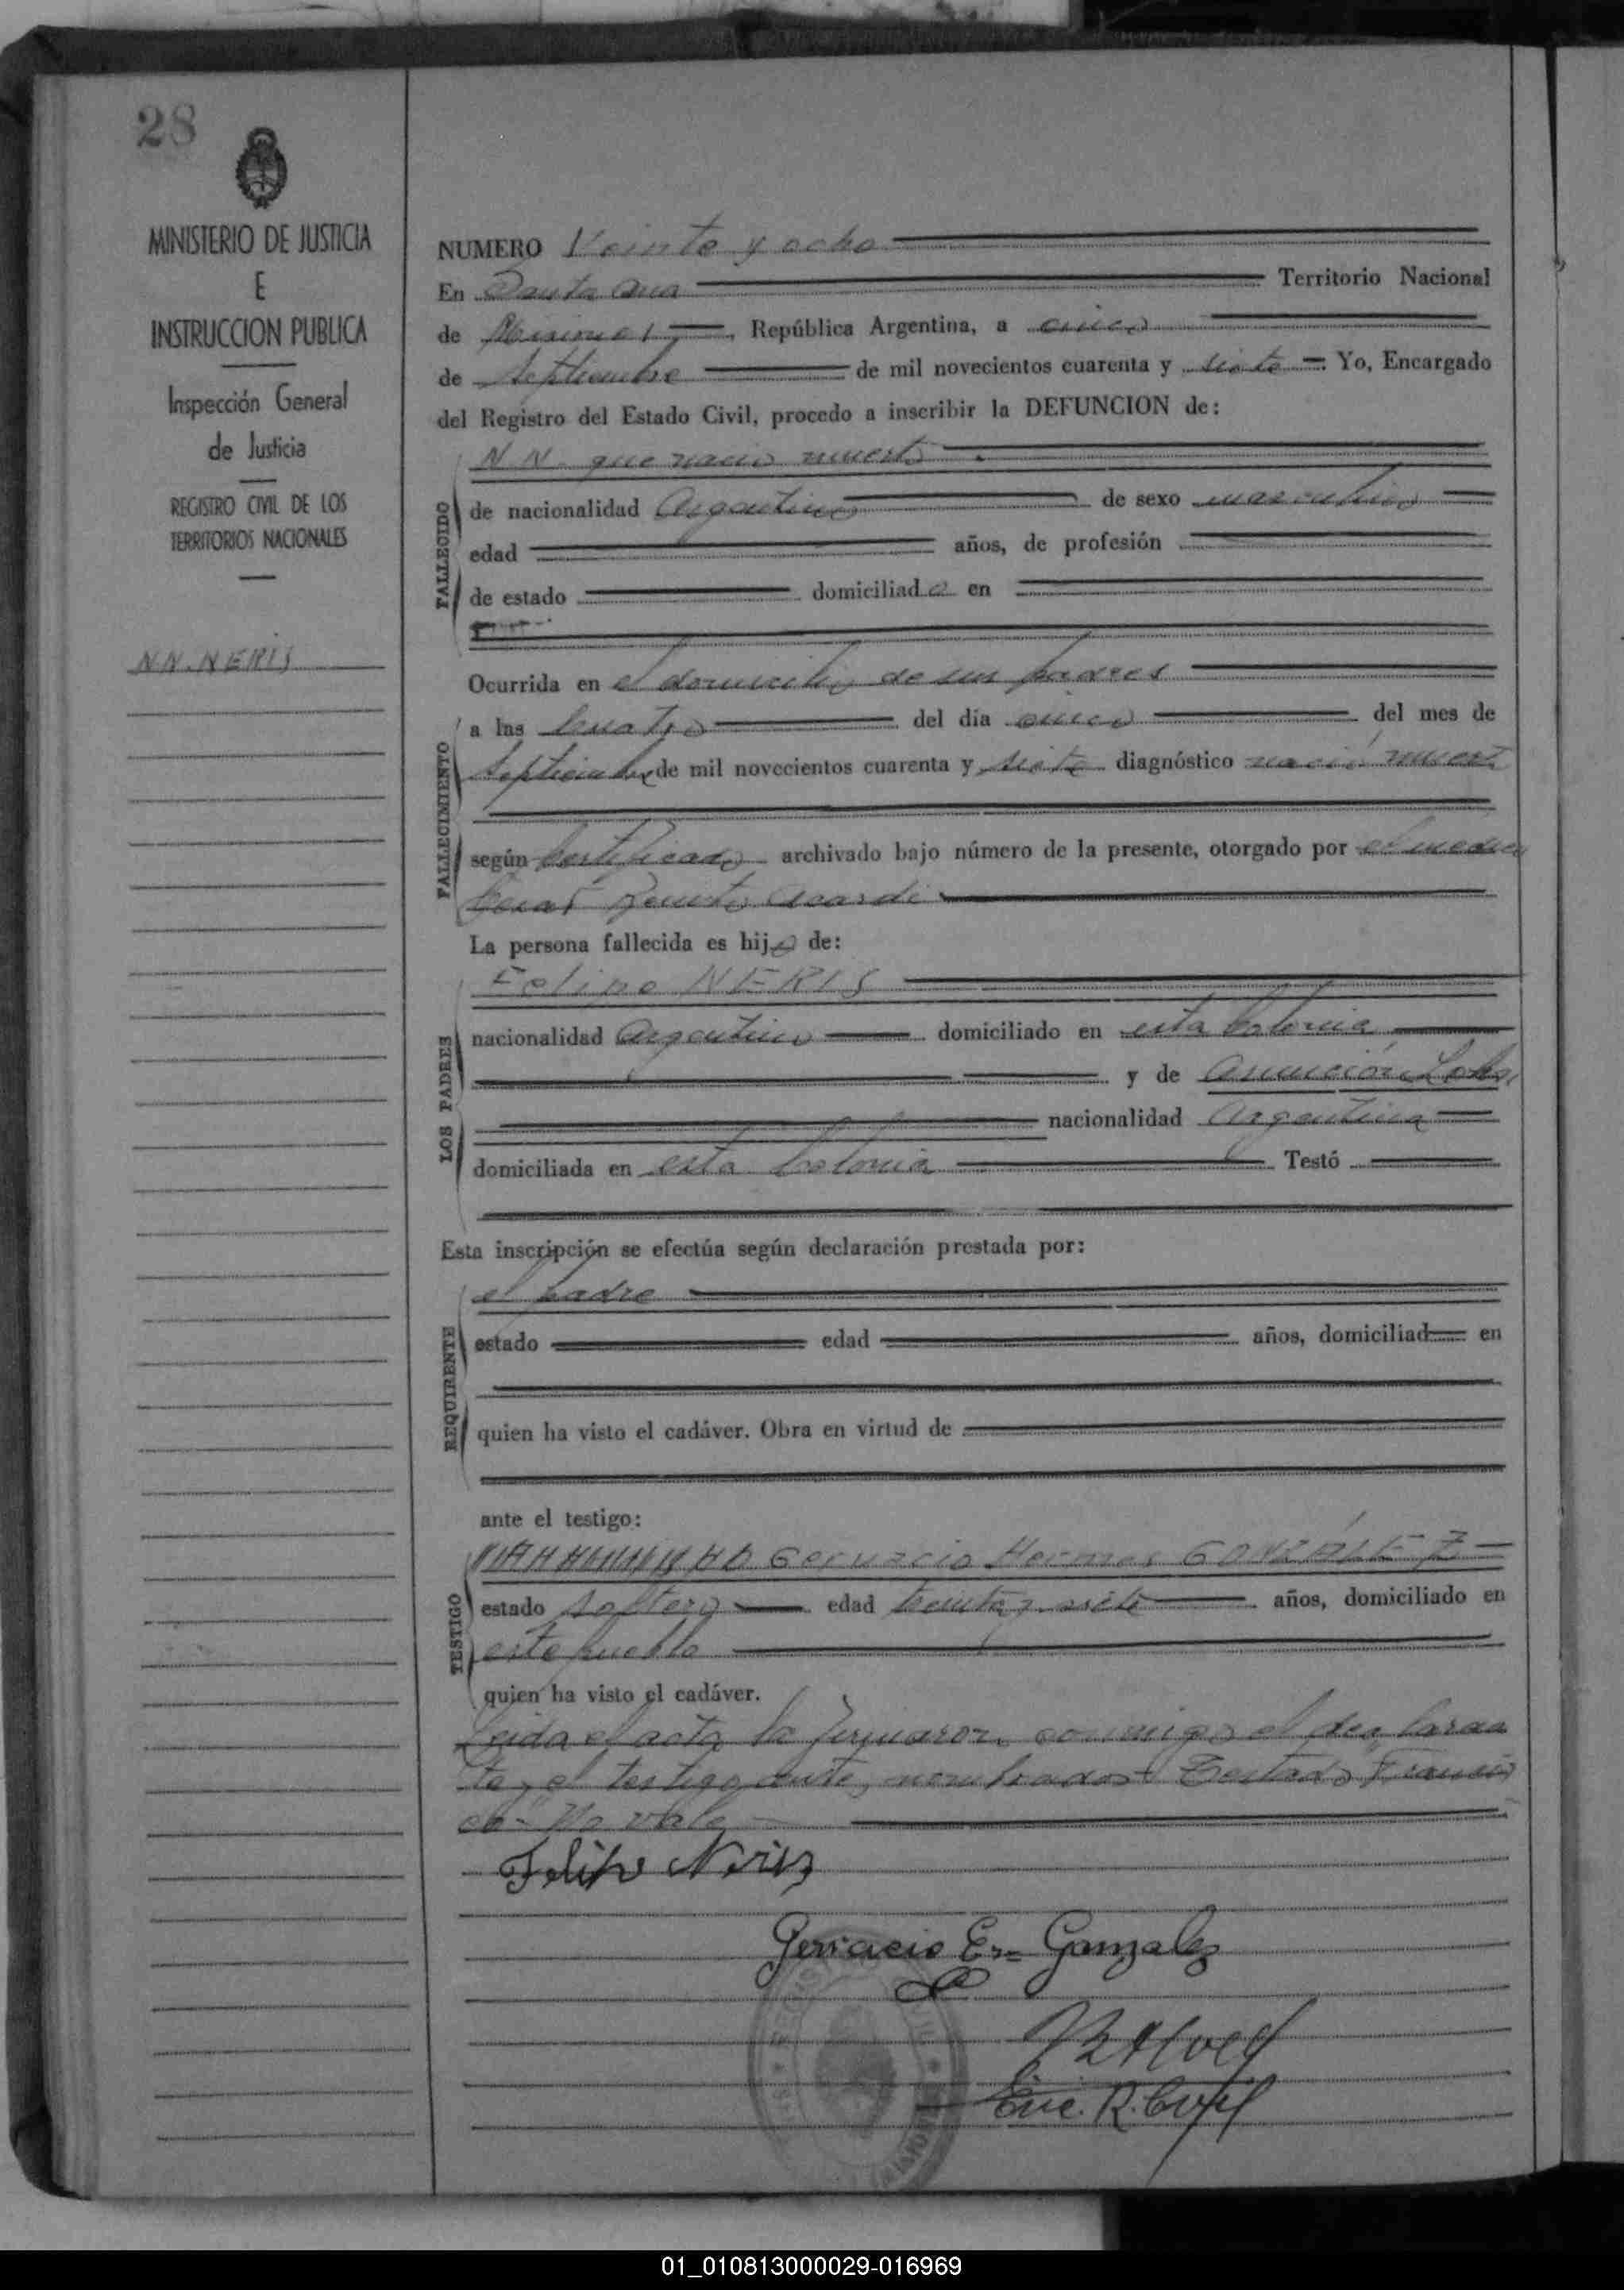 28
MINISTERIO DE JUSTICIA
E
INSTRUCCION PUBLICA
Inspección General
de Justicia
REGISTRO CIVIL DE LOS
TERRITORIOS NACIONALES
NN. NERIS
NUMERO Veinte y ocho
En Santa Ana Territorio Nacional
de Misiones, República Argentina, a cinco
de Septiembre de mil novecientos cuarenta y siete Yo, Encargado
del Registro del Estado Civil, procedo a inscribir la DEFUNCION de:
FALLECIDO
N N. que nacio muerto
de nacionalidad Argentino de sexo masculino
edad años, de profesión
de estado domiciliado en
Ocurrida en el domicilio de sus padres
FALLECIMIENTO
a las cuatro del día cinco del mes de
Septiembre de mil novecientos cuarenta y siete diagnóstico nació muerto
según certificado archivado bajo número de la presente, otorgado por el medico
Benito
La persona fallecida es hijo de:
LOS PADRES
Felipe NERIS
nacionalidad Argentino domiciliado en esta colonia
y de Asunción
nacionalidad Argentina
domiciliada en esta colonia Testó
Esta inscripción se efectúa según declaración prestada por:
REQUIRENTE
el padre
estado edad años, domiciliad en
quien ha visto el cadáver. Obra en virtud de
ante el testigo:
TESTIGO
Gervacio Hermes GONZÁLEZ
estado soltero edad treinta y siete años, domiciliado en
este pueblo
quien ha visto el cadáver.
Leida el acta la firmaron conmigo el declaran
te y el testigo ante nombrados Testado Francis
co - No vale
Felipe Neris
Gervacio Er= Gonzalez
Enc. R. Civil
01_010813000029-016969